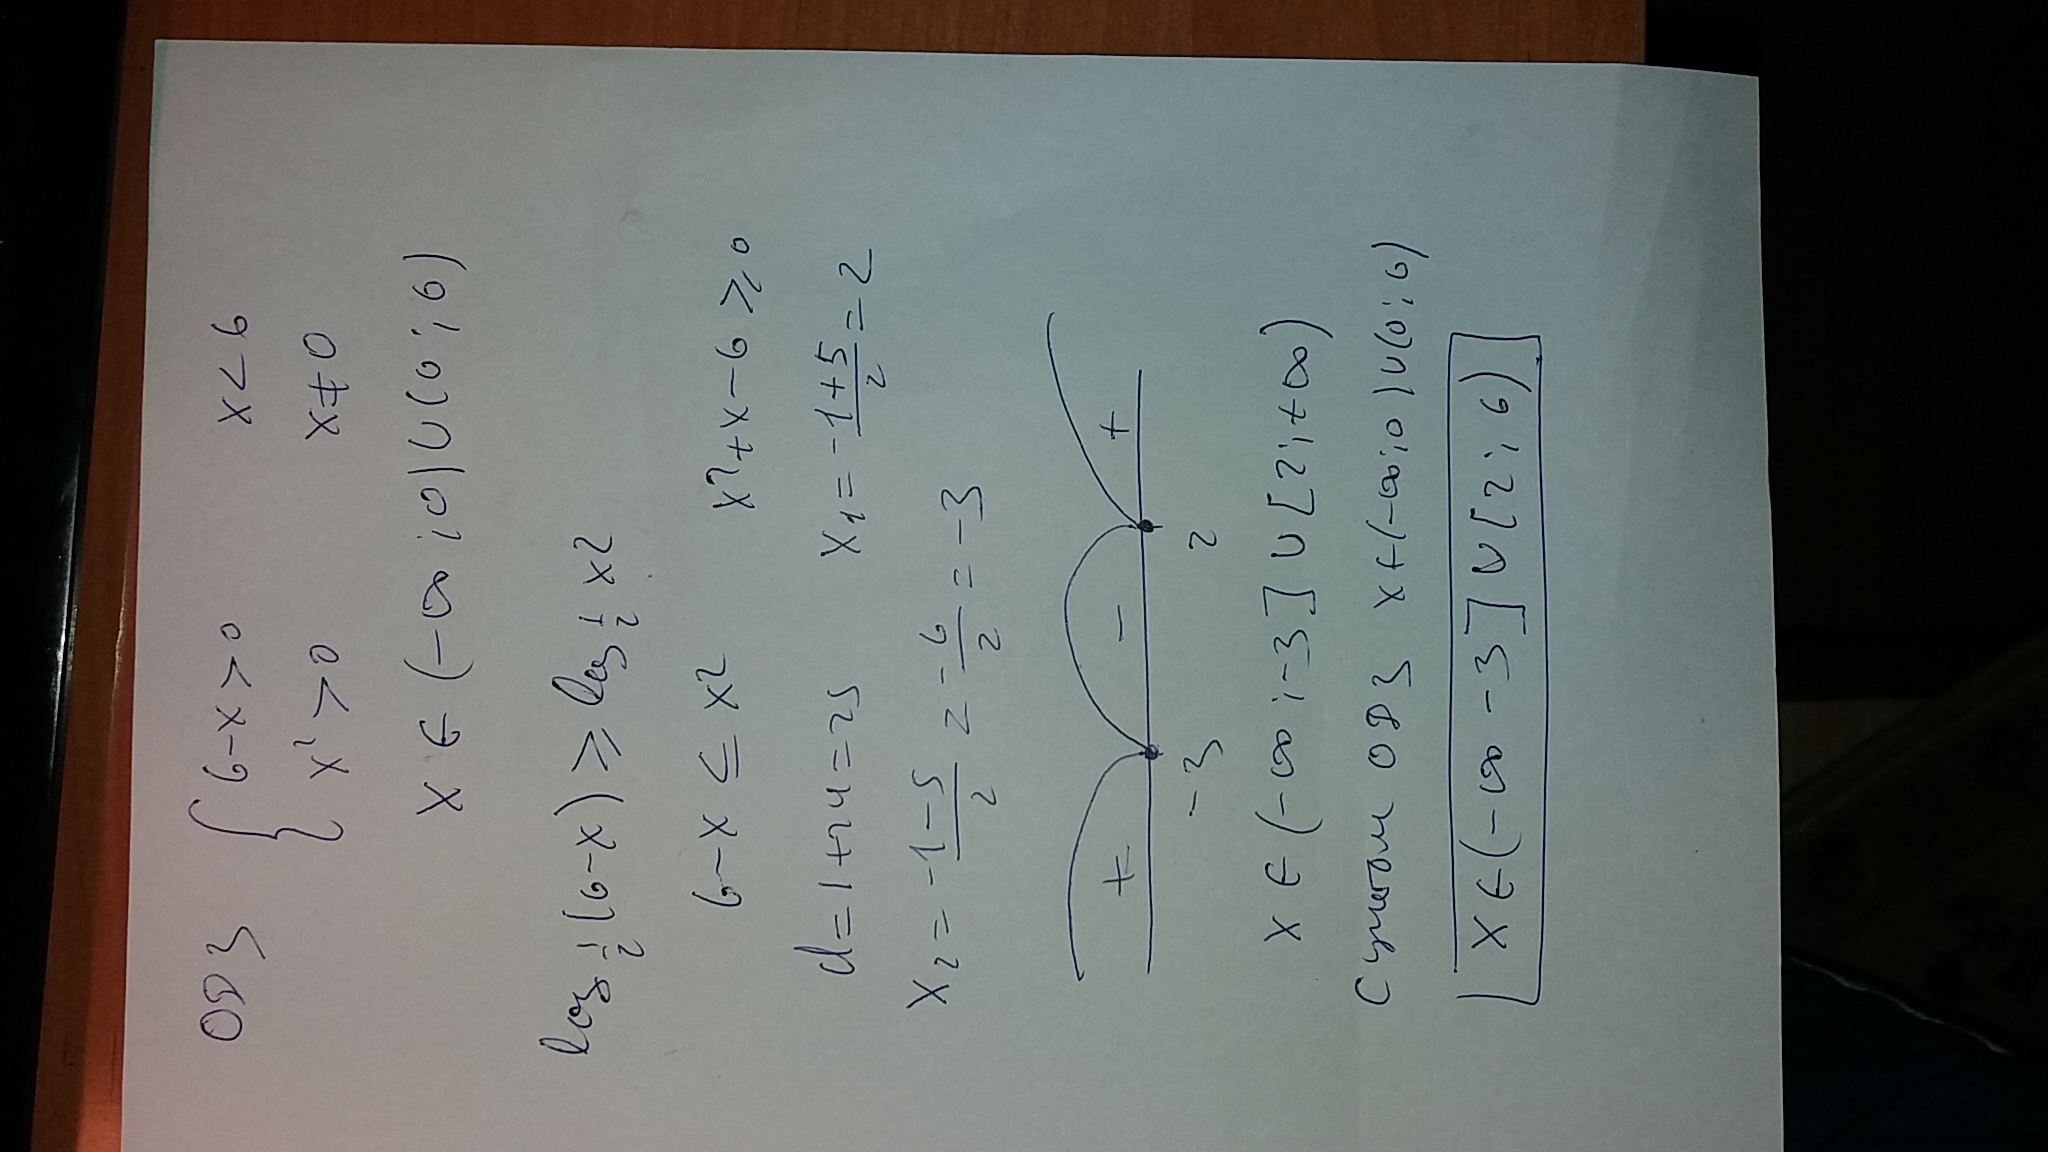 ОДЗ { 6-x>0 x<6
x²>0 x≠0
x ∈ (-∞;0)∪(0;6)
log½(6-x) ≥ log½ x²
6-x ≤ x² x²+x-6 ≥ 0
d=1+24=25 x₁=-1+5/2=2
x₂=-1-5/2=-6/2=-3
+ - +
-3 2
x ∈ (-∞;-3]∪[2;+∞)
С учетом ОДЗ x∈(-∞;0)∪(0;6)
x∈(-∞ -3]∪[2;6)